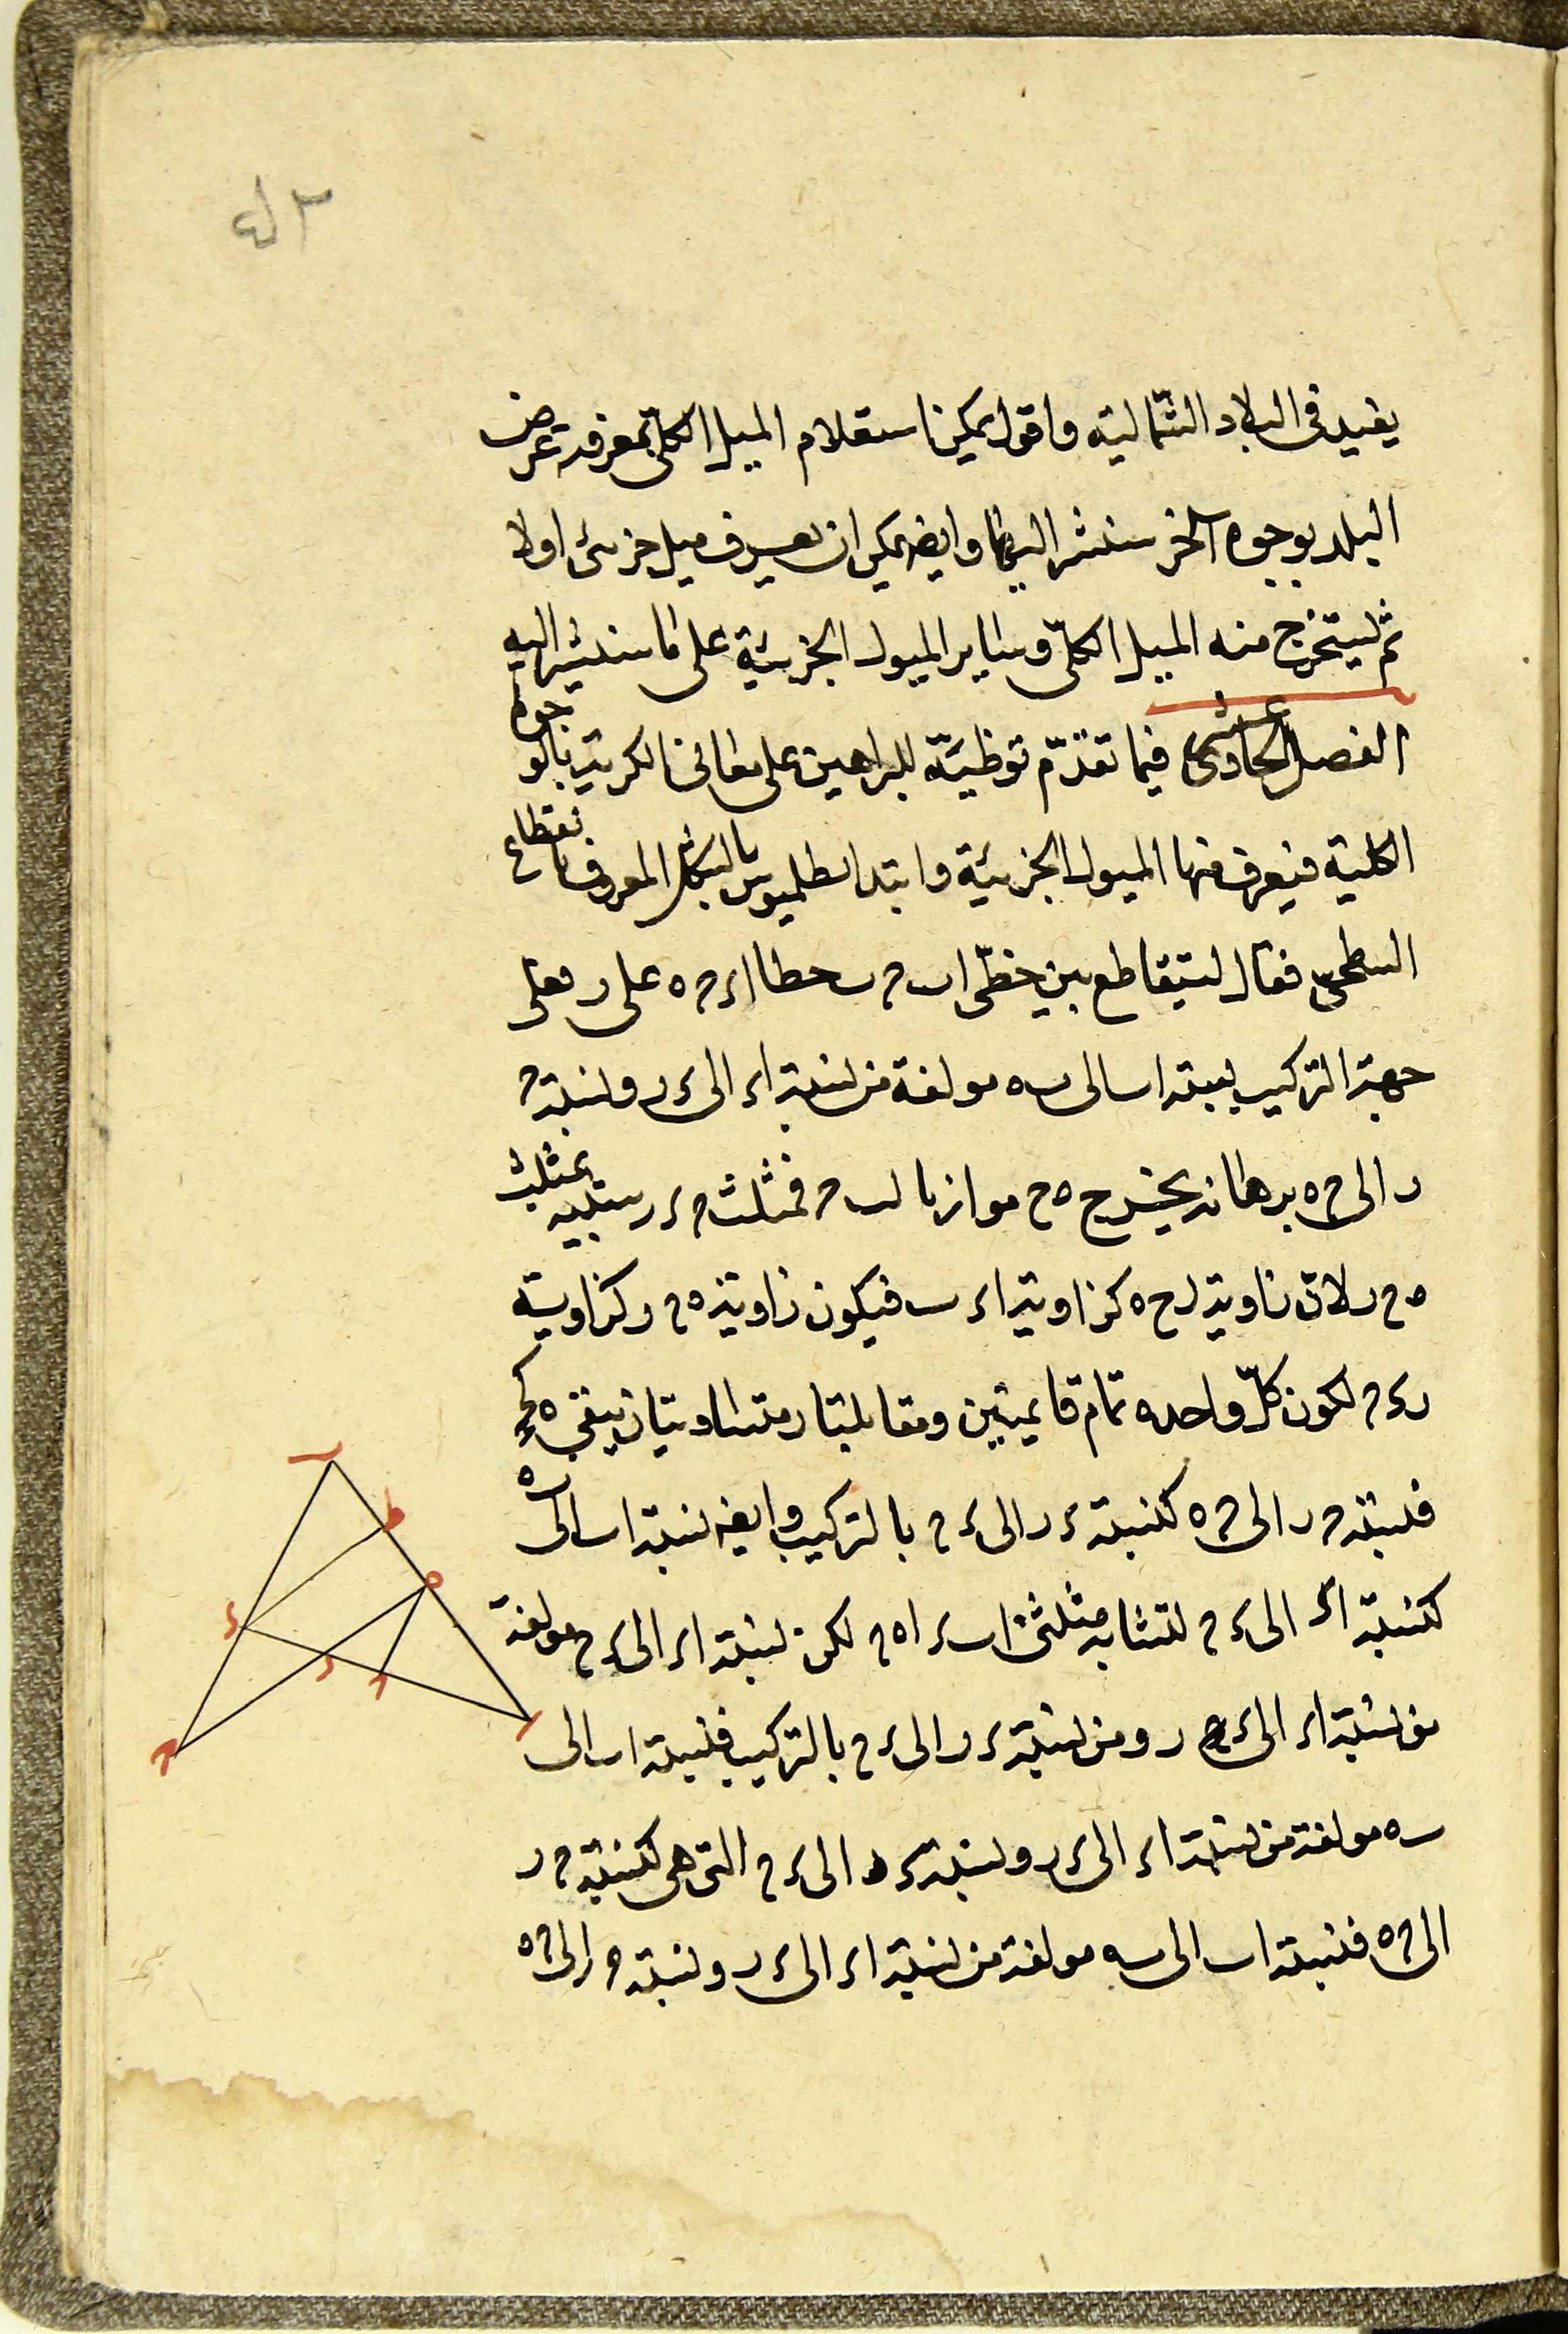 يفيد فى البلاد الشماليّة واقول يمكن استعلام الميل الكلّى بمعرفة عرض
البلد بوجوه اخر سنشير اليها وايضا يمكن ان يعرف ميل جزئى اولا
ثم ليستخرج منه الميل الكلّى وساير الميول الجزئيّة على ما سنشير اليه
الفصل الحادى عشر فيما تقدّم توطيّة للبراهين على الكرية بالوجوه
الكلية فيعرف منها الميول الجزئيّة وابتدا بطلميوس بالشكل المعروف بالقطاع
السطحى فقال ليتقاطع بين خطّى اب ح ب خطا اء ح ه على ر فعلى
جهة التركيب نسبة اب الى ب ه مولفة من نسبة اء الى ء ر ونسبة ح
ر الى ح ه برهانه يخرج ه ح موازيا لب ح فمثلث ح ء ر شبيه بمثلث
ه ح ر لان زاوية ر ح ه كزاوية اء ب فيكون زاوية ه ح ر كزاوية
ر ء ح لكون كلّ واحده تمام قايمتين ومقابلتا ر متساويتان يبقى ه كح
فنسبة ح ر الى ح ه كنسبة ء ر الى ء ح بالتركيب وايضا نسبة اب الى ب ه
كنسبة اء الى ء ح لتشابه مثلثى اب ء ا ه ح لكن نسبة اء الى ء ح مولفة
من نسبة اء الى ء ر ومن نسبة ء ر الى ء ح بالتركيب فنسبة اب الى
ب ه مولفة من نسبة اء الى ء ر ونسبة ء ر الى ء ح التى هى كنسبة ح ر
الى ح ه فنسبة اب الى ب ه مولفة من نسبة اء الى ء ر ونسبة ح ر الى ح ه
ب
ط
ه
ء
ر
ح
ا
ح